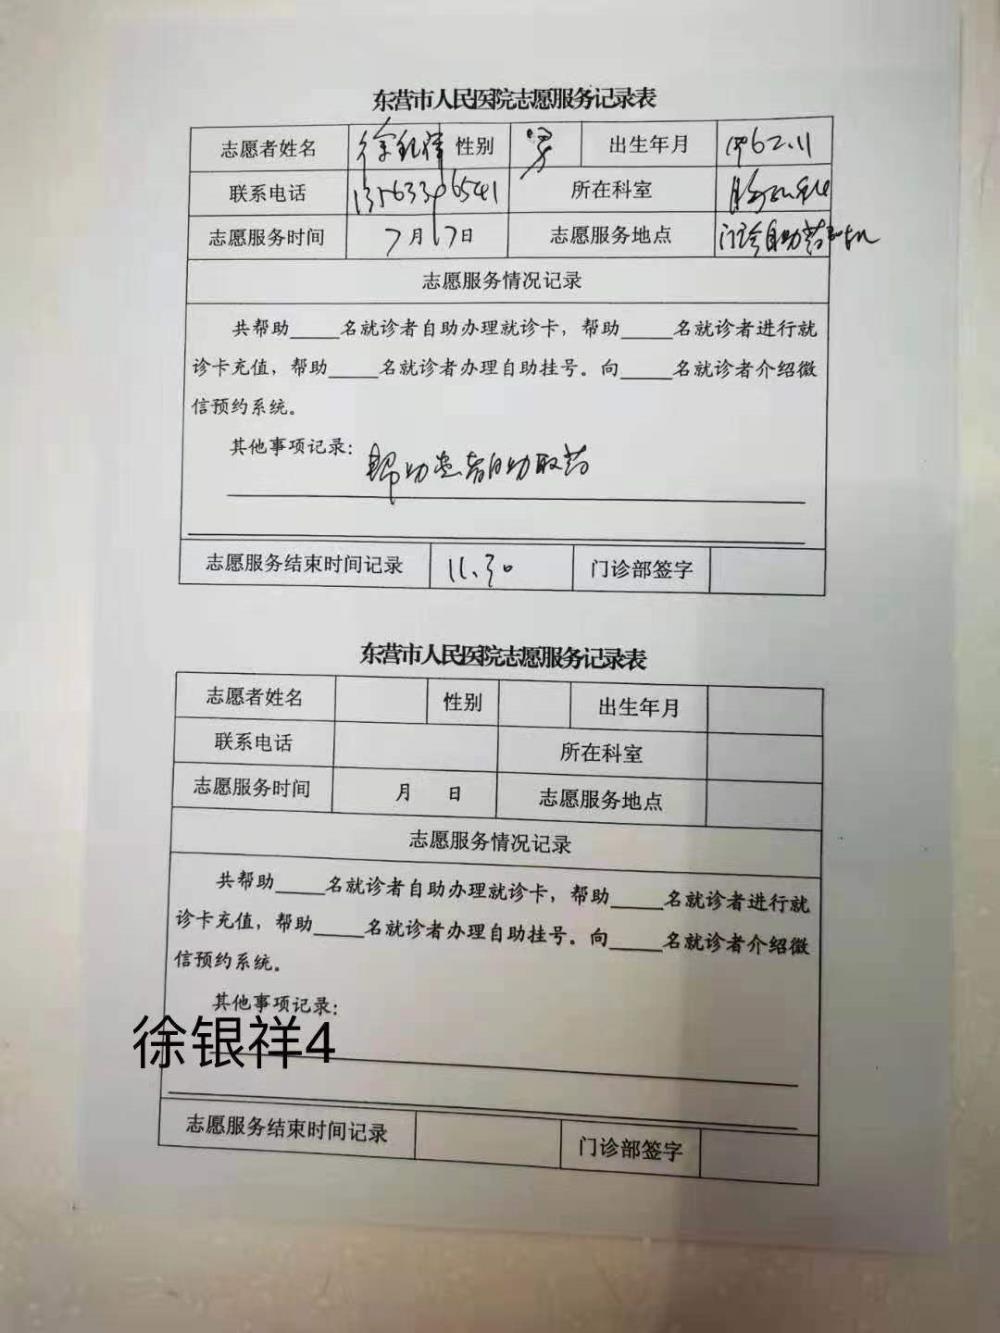 东营市人民医院志愿服务记录表
志愿者姓名 徐银祥 性别 男 出生年月 1962.11
联系电话 13563396541 所在科室
志愿服务时间 7月17日 志愿服务地点 门诊自助药
志愿服务情况记录
共帮助____名就诊者自助办理就诊卡，帮助____名就诊者进行就
诊卡充值，帮助____名就诊者办理自助挂号。向____名就诊者介绍微
信预约系统。
其他事项记录：帮助患者自助取药
志愿服务结束时间记录 11、30 门诊部签字
东营市人民医院志愿服务记录表
志愿者姓名 性别 出生年月
联系电话 所在科室
志愿服务时间 月 日 志愿服务地点
志愿服务情况记录
共帮助____名就诊者自助办理就诊卡，帮助____名就诊者进行就
诊卡充值，帮助____名就诊者办理自助挂号。向____名就诊者介绍微
信预约系统。
其他事项记录：
徐银祥4
志愿服务结束时间记录 门诊部签字